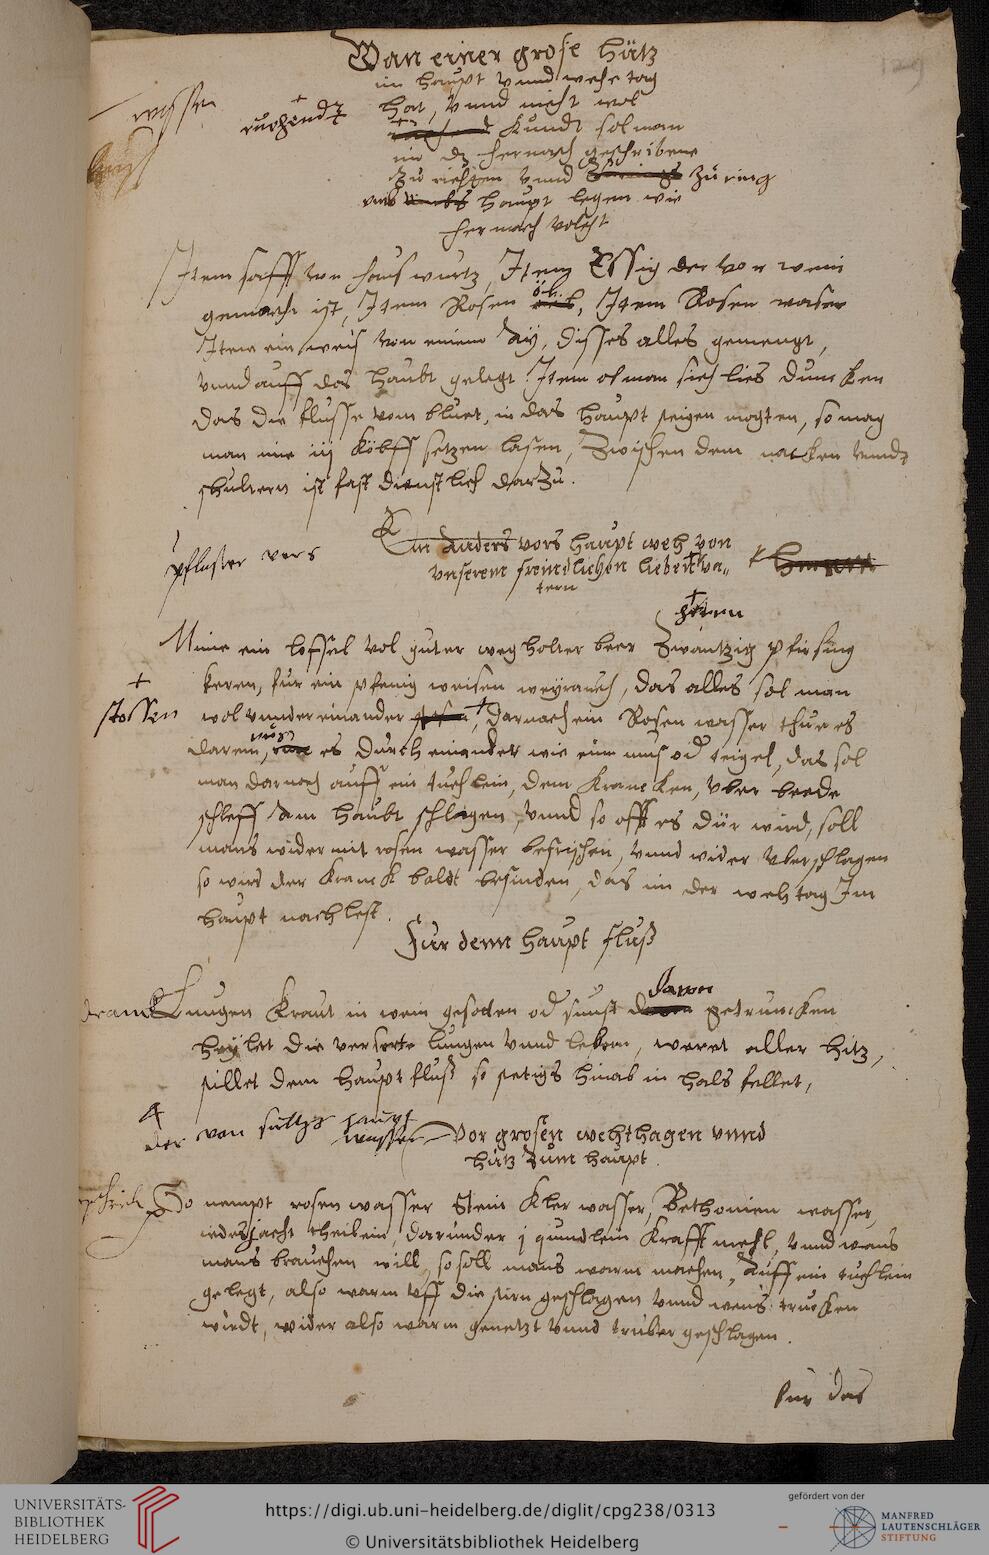 129
Wan einer grose hütz
im haupt vnnd wehe tag
hat, vnnd nicht wol
wasser
ruohendt
kundt sol man
im dz hernach geschribene
zu richten vnnd zu ring
vms haupt legen wie
hernach volcht
Item safft von hauswurtz, Item Essig der von wein
gemacht ist, Item Rosen öl, Item Rosen waser
Item ein weis von einem Ay, disses alles gemengt,
vnnd auff das haubt gelegt. Item ob man sich lies duncken
das die flusse vom bluet, in das haupt steigen mogten, so mag
man im iij köbff setzen lasen, Zwischen dem nacken vnndt
schultern ist fast dienstlich darzu.
Ein anders vors haupt weh von
vnserem freindlichen lieben va„
tern
pflaster vors
herrn
Nime ein lofsel vol guter weg holter beer Zwantzig pfirsing
keren, fur ein pfenig weisen weyrauch, das alles sol man
stossen
wol vnnder einander, darnach ein Rosen wasser thue es
darein, es durch einander wie ein mus od teigel, das sol
man darnach auff ein tuchlein, dem Krancken, vber beede
schleff am haubt schlagen, vnnd so offt es dür wird, soll
mans wider mit rosen wasser befrischen, vnnd wider vberschlagen
so wird der Kranck baldt befinden, das im der wehtag Im
haupt nachlest.
Fur denn haupt fluß
dranck
Lungen Kraut in wein gesotten od sunst dauon getruncken
heylet die verserte lungen vnnd lebern, weret aller hitz,
stillet dem haupt fluß so stetigs hinab in hals fellet,
der von sültz haupt
wasser
Vor grosen wehthagen vnnd
hütz Zum haupt.
So nempt rosen wasser Stein Kler wasser, Bethonien wasser,
iedes j acht theil ein, darunder j quindlein Krafft mehl, vnnd wans
mans brauchen will, so soll mans warm machen, Auff ein tuchlein
gelegt, also warm vff die stirn geschlagen vnnd wens trucken
wirdt, wider also warm genetzt vnnd truber geschlagen.
Fur das
UNIVERSITÄTS-
BIBLIOTHEK
HEIDELBERG
https://digi.ub.uni-heidelberg.de/diglit/cpg238/0313
© Universitätsbibliothek Heidelberg
gefördert von der
MANFRED
LAUTENSCHLÄGER
STIFTUNG